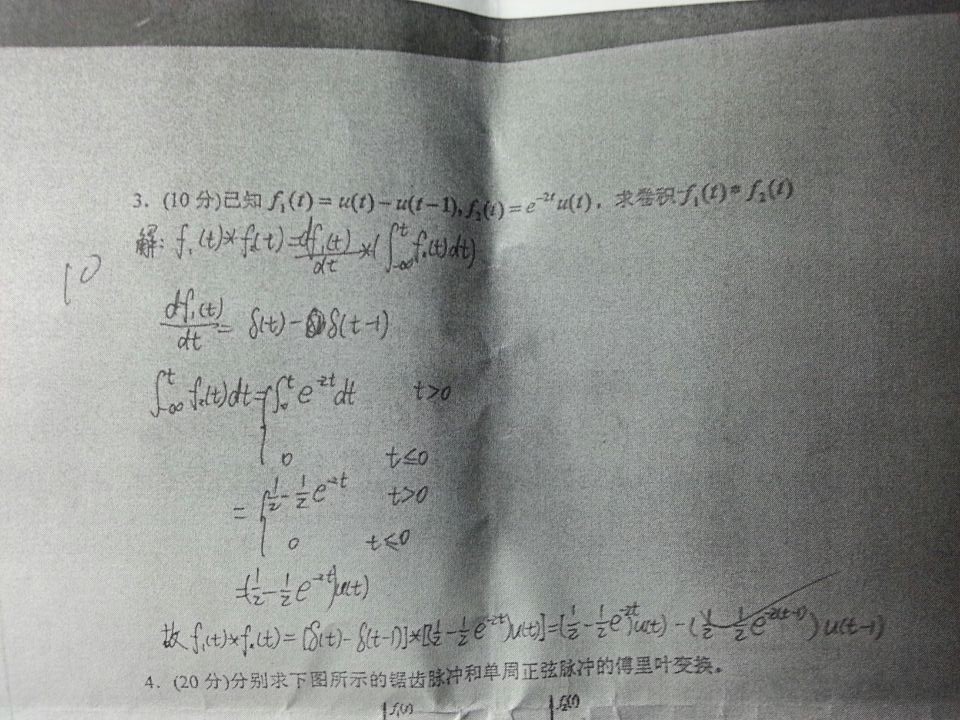 3. (10 分)已知 f₁(t) = u(t) − u(t−1), f₂(t) = e⁻²ᵗu(t), 求卷积 f₁(t) * f₂(t)
解: f₁(t)*f₂(t) = df₁(t)/dt *(∫_{-∞}^{t} f₂(t)dt)
10
df₁(t)/dt = δ(t) − δ(t−1)
∫_{-∞}^{t} f₂(t)dt = { ∫₀ᵗ e⁻²ᵗ dt t>0
0 t≤0
= { 1/2 − 1/2 e⁻²ᵗ t>0
0 t≤0
=(1/2 − 1/2 e⁻²ᵗ)u(t)
故 f₁(t)*f₂(t) = [δ(t) − δ(t−1)]*[(1/2 − 1/2 e⁻²ᵗ)u(t)] = (1/2 − 1/2 e⁻²ᵗ)u(t) − (1/2 − 1/2 e^{-2(t-1)}) u(t−1)
4. (20 分)分别求下图所示的锯齿脉冲和单周正弦脉冲的傅里叶变换。
f₁(t) f₂(t)